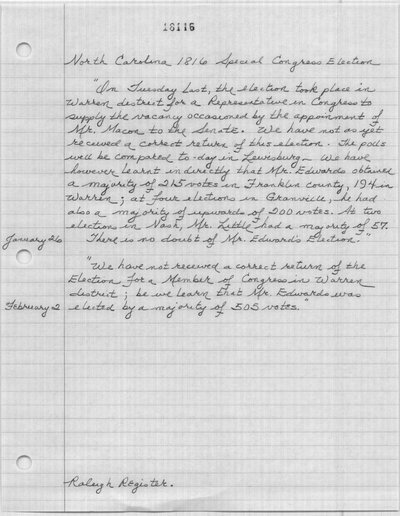 18116
North Carolina 1816 Special Congress Election
"On Tuesday last, the election took place in
Warren district for a Representative in Congress to
supply the vacancy occasioned by the appoinment of
Mr. Macon to the Senate. We have not as yet
received a correct return of this election. The polls
will be compared to-day in Lewisburg. We have,
however learnt indirectly that Mr. Edwards obtained
a majority of 215 votes in Franklin County, 194 in
Warren; at four elections in Granville, he had
also a majority of upwards of 200 votes. At two
elections in Nash, Mr. Little had a majority of 57.
January 26 There is no doubt of Mr. Edwards Election."
"We have not received a correct return of the
Election for a Member of Congress in Warren
district; be we learn that Mr. Edwards was
February 2 elected by a majority of 505 votes."
Raleigh Register.